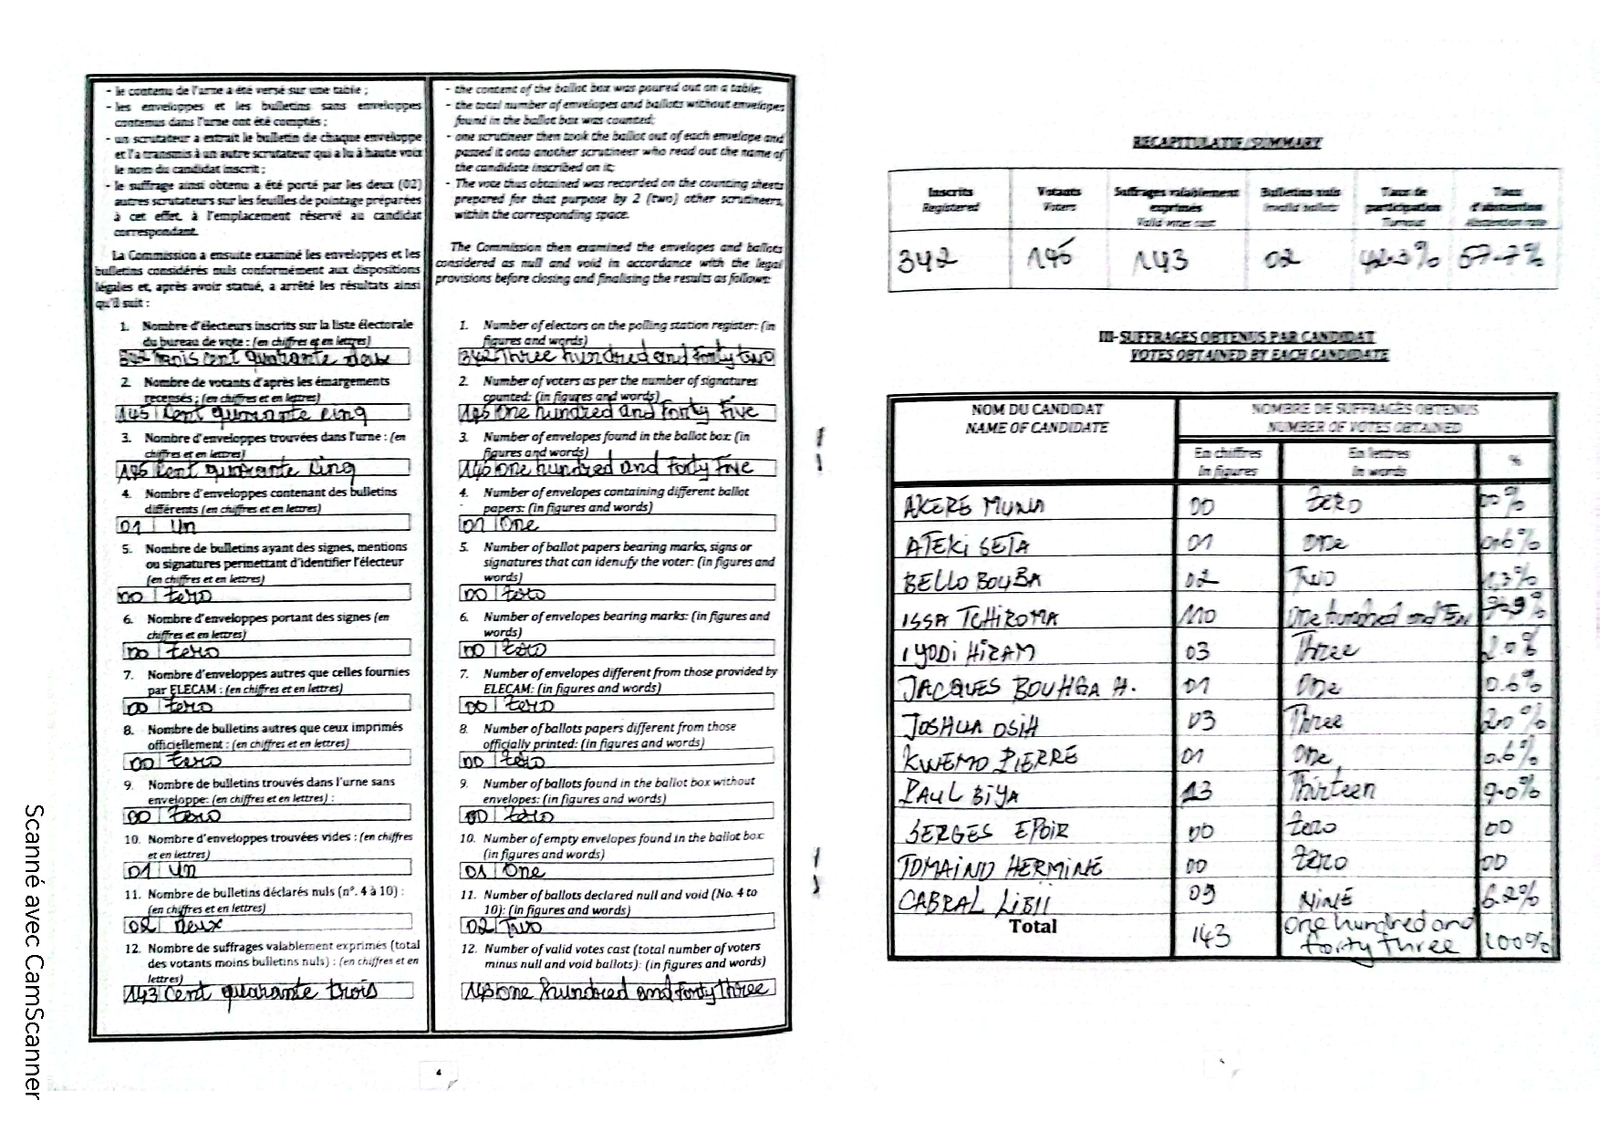 - le contenu de l'urne a été versé sur une table ;
- les enveloppes et les bulletins sans enveloppes
contenus dans l'urne ont été comptés ;
- un scrutateur a extrait le bulletin de chaque enveloppe
et l'a transmis à un autre scrutateur qui a lu à haute voix
le nom du candidat inscrit ;
- le suffrage ainsi obtenu a été porté par les deux (02)
autres scrutateurs sur les feuilles de pointage préparées
à cet effet, à l'emplacement réservé au candidat
correspondant.
La Commission a ensuite examiné les enveloppes et les
bulletins considérés nuls conformément aux dispositions
légales et, après avoir statué, a arrêté les résultats ainsi
qu'il suit :
1. Nombre d'électeurs inscrits sur la liste électorale
du bureau de vote : (en chiffres et en lettres)
342 Trois cent quarante deux
2. Nombre de votants d'après les émargements
recensés : (en chiffres et en lettres)
145 Cent quarante cinq
3. Nombre d'enveloppes trouvées dans l'urne : (en
chiffres et en lettres)
145 Cent quarante cinq
4. Nombre d'enveloppes contenant des bulletins
différents (en chiffres et en lettres)
01 Un
5. Nombre de bulletins ayant des signes, mentions
ou signatures permettant d'identifier l'électeur
(en chiffres et en lettres)
00 zero
6. Nombre d'enveloppes portant des signes (en
chiffres et en lettres)
00 zero
7. Nombre d'enveloppes autres que celles fournies
par ELECAM : (en chiffres et en lettres)
00 zero
8. Nombre de bulletins autres que ceux imprimés
officiellement : (en chiffres et en lettres)
00 zero
9. Nombre de bulletins trouvés dans l'urne sans
enveloppe: (en chiffres et en lettres) :
00 zero
10. Nombre d'enveloppes trouvées vides : (en chiffres
et en lettres)
01 Un
11. Nombre de bulletins déclarés nuls (n°. 4 à 10) :
(en chiffres et en lettres)
02 Deux
12. Nombre de suffrages valablement exprimés (total
des votants moins bulletins nuls) : (en chiffres et en
lettres)
143 Cent quarante trois
- the content of the ballot box was poured out on a table;
- the total number of envelopes and ballots without envelopes
found in the ballot box was counted;
- one scrutineer then took the ballot out of each envelope and
passed it onto another scrutineer who read out the name of
the candidate inscribed on it;
- The vote thus obtained was recorded on the counting sheets
prepared for that purpose by 2 (two) other scrutineers,
within the corresponding space.
The Commission then examined the envelopes and ballots
considered as null and void in accordance with the legal
provisions before closing and finalising the results as follows:
1. Number of electors on the polling station register: (in
figures and words)
342 Three hundred and Forty two
2. Number of voters as per the number of signatures
counted: (in figures and words)
145 One hundred and Forty Five
3. Number of envelopes found in the ballot box: (in
figures and words)
145 One hundred and Forty Five
4. Number of envelopes containing different ballot
papers: (in figures and words)
01 One
5. Number of ballot papers bearing marks, signs or
signatures that can identify the voter: (in figures and
words)
00 zero
6. Number of envelopes bearing marks: (in figures and
words)
00 zero
7. Number of envelopes different from those provided by
ELECAM: (in figures and words)
00 zero
8. Number of ballots papers different from those
officially printed: (in figures and words)
00 zero
9. Number of ballots found in the ballot box without
envelopes: (in figures and words)
00 zero
10. Number of empty envelopes found in the ballot box:
(in figures and words)
01 One
11. Number of ballots declared null and void (No. 4 to
10): (in figures and words)
02 Two
12. Number of valid votes cast (total number of voters
minus null and void ballots): (in figures and words)
143 One hundred and Forty three
4
RECAPITULATIF/SUMMARY
Inscrits Votants Suffrages valablement exprimés Bulletins nuls Taux de participation Taux d'abstention
Registered Voters Valid votes cast Invalid ballots Turnout Abstention rate
342 145 143 02 42.3% 57.7%
III-SUFFRAGES OBTENUS PAR CANDIDAT
VOTES OBTAINED BY EACH CANDIDATE
NOM DU CANDIDAT NOMBRE DE SUFFRAGES OBTENUS
NAME OF CANDIDATE NUMBER OF VOTES OBTAINED
En chiffres En lettres %
In figures in words
AKERE MUNA 00 Zero 00%
ATEKI SETA 01 One 0.6%
BELLO BOUBA 02 Two 1.3%
ISSA TCHIROMA 110 One hundred and
IYODI HIRAM 03 Three 2.0%
JACQUES BOUHGA H. 01 One 0.6%
JOSHUA OSIH 03 Three 2.0%
KWEMO PIERRE 01 One 0.6%
PAUL BIYA 13 Thirteen 9.0%
SERGES EPOIR 00 Zero 00
TOMAINO HERMINE 00 Zero 00
CABRAL LIBII 09 NINE 6.2%
Total 143 One hundred and forty three 100%
Scanné avec CamScanner